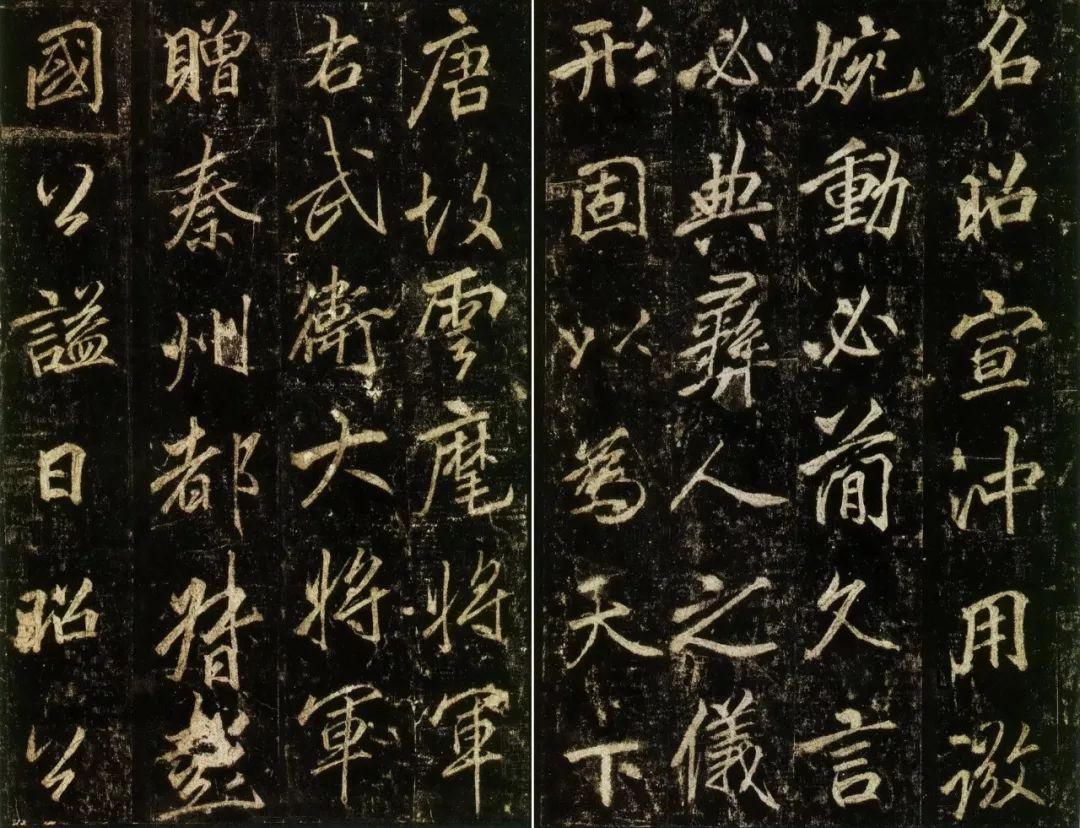 名昭宣沖用微
婉動必簡久言
必典彝人之儀
形固以為天下
唐故雲麾將軍
右武衛大將軍
贈秦州都督彭
國公謚曰昭公